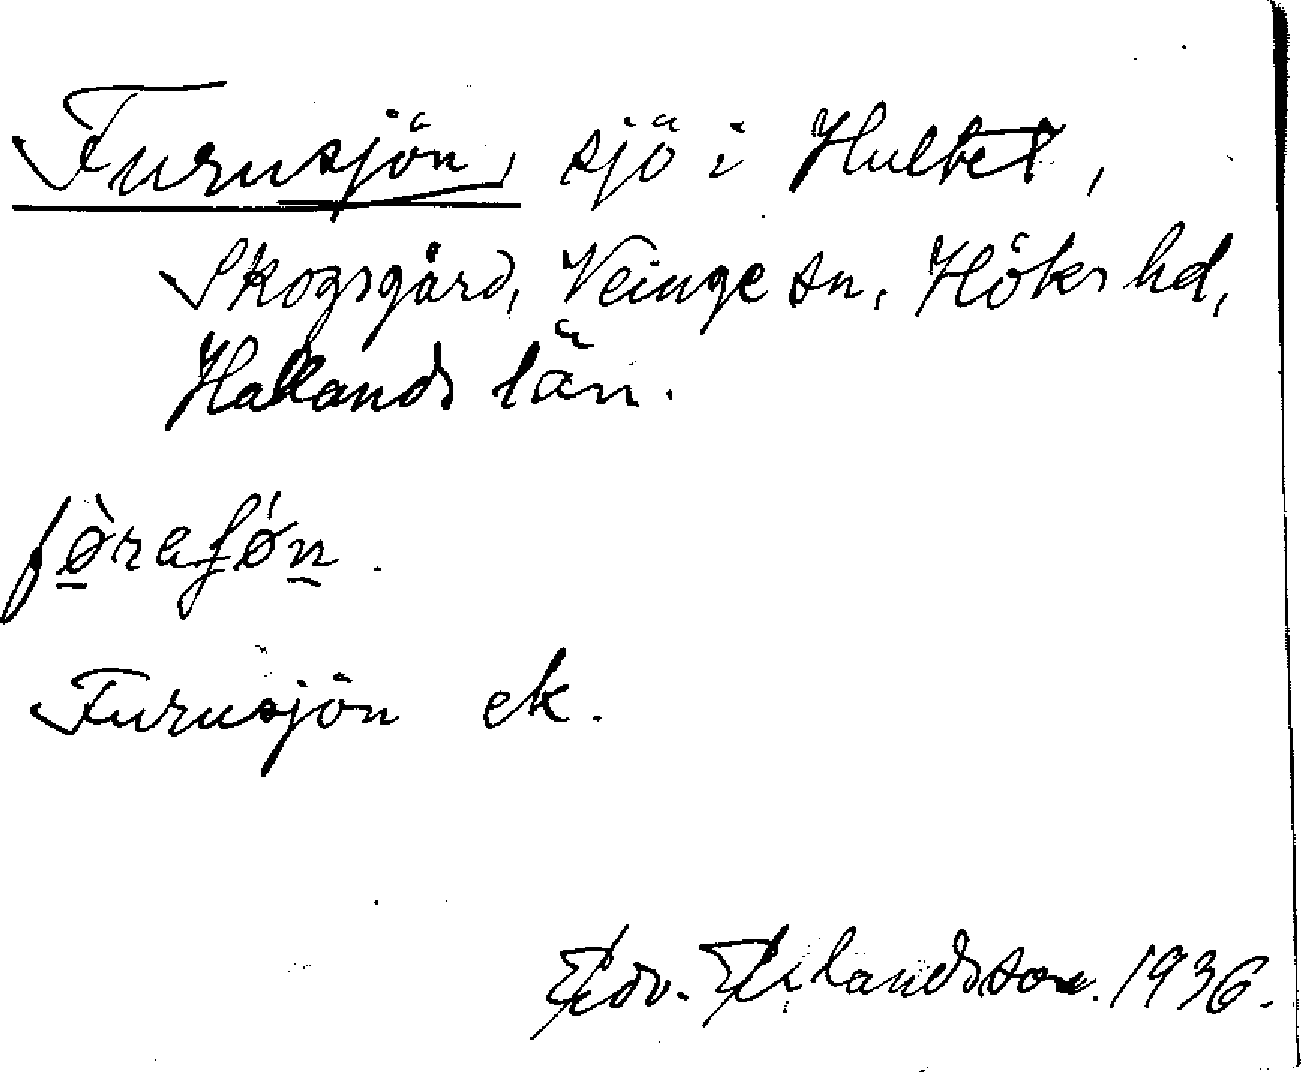 Furusjön, sjö i Hultet,
Skogsgård, Veinge sn, Höks hd,
Hallands län.
fø̀raʃǿn.
Furusjön ek.
Edv. Erlandsson. 1936.